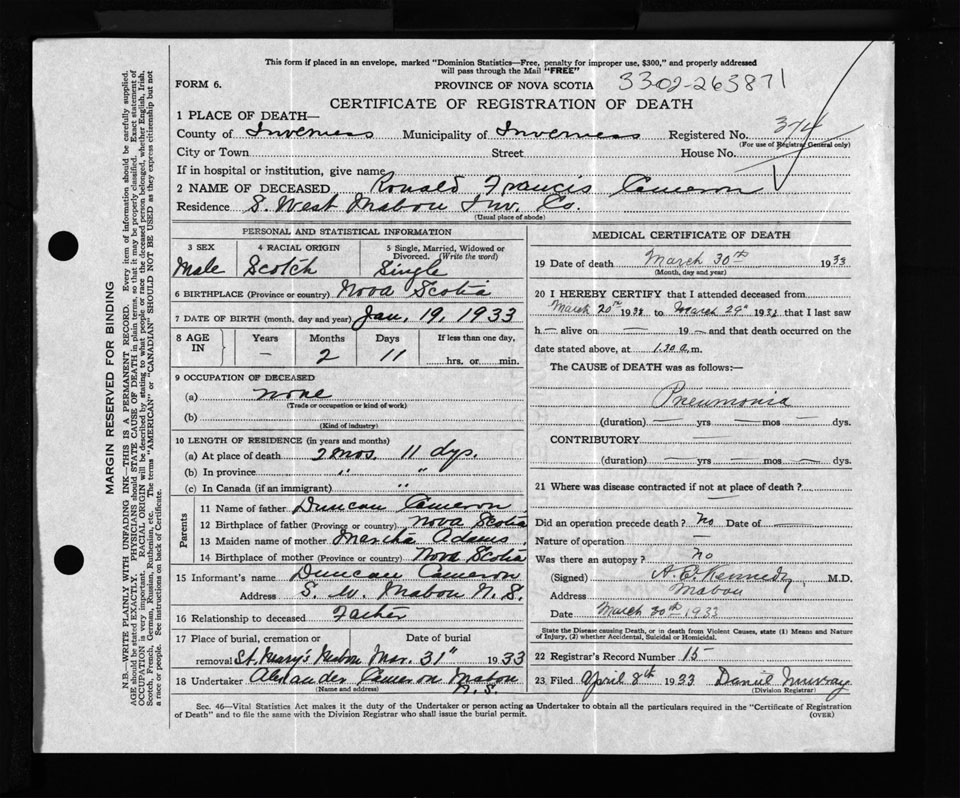 This form if placed in an envelope, marked "Dominion Statistics—Free, penalty for improper use, $300," and properly addressed
will pass through the Mail "FREE"
FORM 6.
PROVINCE OF NOVA SCOTIA
3302-263871
CERTIFICATE OF REGISTRATION OF DEATH
1 PLACE OF DEATH—
County of Inverness Municipality of Inverness Registered No. 374
(For use of Registrar General only)
City or Town Street House No.
If in hospital or institution, give name
2 NAME OF DECEASED Ronald Francis Cameron
Residence S. West Mabou Inv. Co.
(Usual place of abode)
PERSONAL AND STATISTICAL INFORMATION
3 SEX 4 RACIAL ORIGIN 5 Single, Married, Widowed or
Divorced. (Write the word)
Male Scotch Single
6 BIRTHPLACE (Province or country) Nova Scotia
7 DATE OF BIRTH (month, day and year) Jan. 19, 1933
8 AGE IN Years Months Days If less than one day,
— 2 11 hrs. or min.
9 OCCUPATION OF DECEASED
(a) none
(Trade or occupation or kind of work)
(b)
(Kind of industry)
10 LENGTH OF RESIDENCE (in years and months)
(a) At place of death 2 mos. 11 dys.
(b) In province " "
(c) In Canada (if an immigrant) "
Parents
11 Name of father Duncan Cameron
12 Birthplace of father (Province or country) Nova Scotia
13 Maiden name of mother Martha Adams
14 Birthplace of mother (Province or country) Nova Scotia
15 Informant's name Duncan Cameron
Address S. W. Mabou N. S.
16 Relationship to deceased Father
17 Place of burial, cremation or Date of burial
removal St. Mary's Mabou Mar. 31" 1933
18 Undertaker Alexander Cameron Mabou
N. S.
(Name and address)
MEDICAL CERTIFICATE OF DEATH
19 Date of death March 30th 1933
(Month, day and year)
20 I HEREBY CERTIFY that I attended deceased from
March 20th 1933 to March 29th 1933 that I last saw
h — alive on — 19 — and that death occurred on the
date stated above, at 1.30 a.m.
The CAUSE OF DEATH was as follows:—
Pneumonia
(duration) — yrs — mos — dys.
CONTRIBUTORY —
(duration) — yrs — mos — dys.
21 Where was disease contracted if not at place of death?
—
Did an operation precede death? No Date of —
Nature of operation —
Was there an autopsy? No
(Signed) A. E. Kennedy M.D.
Address Mabou
Date March 30th 1933
State the Disease causing Death, or in death from Violent Causes, state (1) Means and Nature
of Injury, (2) whether Accidental, Suicidal or Homicidal.
22 Registrar's Record Number 15
23 Filed April 8th 1933 Daniel Murray
(Division Registrar)
Sec. 46—Vital Statistics Act makes it the duty of the Undertaker or person acting as Undertaker to obtain all the particulars required in the "Certificate of Registration
of Death" and to file the same with the Division Registrar who shall issue the burial permit.
(OVER)
MARGIN RESERVED FOR BINDING
N.B.—WRITE PLAINLY WITH UNFADING INK—THIS IS A PERMANENT RECORD. Every item of information should be carefully supplied.
AGE should be stated EXACTLY. PHYSICIANS should STATE CAUSE OF DEATH in plain terms, so that it may be properly classified. Exact statement of
OCCUPATION is very important. RACIAL ORIGIN will be described by stating to what people or race the deceased person belonged, whether English, Irish,
Scotch, French, German, Russian, Ruthenian, etc. The terms "AMERICAN" or "CANADIAN" SHOULD NOT BE USED as they express citizenship but not
a race or people. See instructions on back of Certificate.